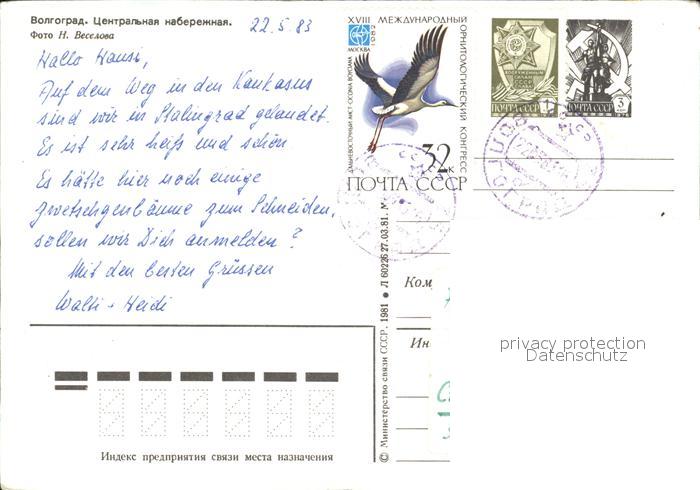 Волгоград. Центральная набережная.
Фото Н. Веселова
22.5.83
Hallo Hansi,
Auf dem Weg in den Kaukasus
sind wir in Stalingrad gelandet.
Es ist sehr heiß und schön
Es hätte hier noch einige
Zwetschgenbäume zum Schneiden,
sollen wir Dich anmelden?
Mit den besten Grüssen
Walti + Heidi
XVIII МЕЖДУНАРОДНЫЙ
ОРНИТОЛОГИЧЕСКИЙ КОНГРЕСС
1982
МОСКВА
ДАЛЬНЕВОСТОЧНЫЙ АИСТ
32к
ПОЧТА СССР
ВООРУЖЕННЫХ СИЛАХ СССР
ПОЧТА СССР 1к
ПОЧТА СССР 3к
© Министерство связи СССР, 1981 Л 60226 27.03.81.
Ком
Ин
privacy protection
Datenschutz
Индекс предприятия связи места назначения